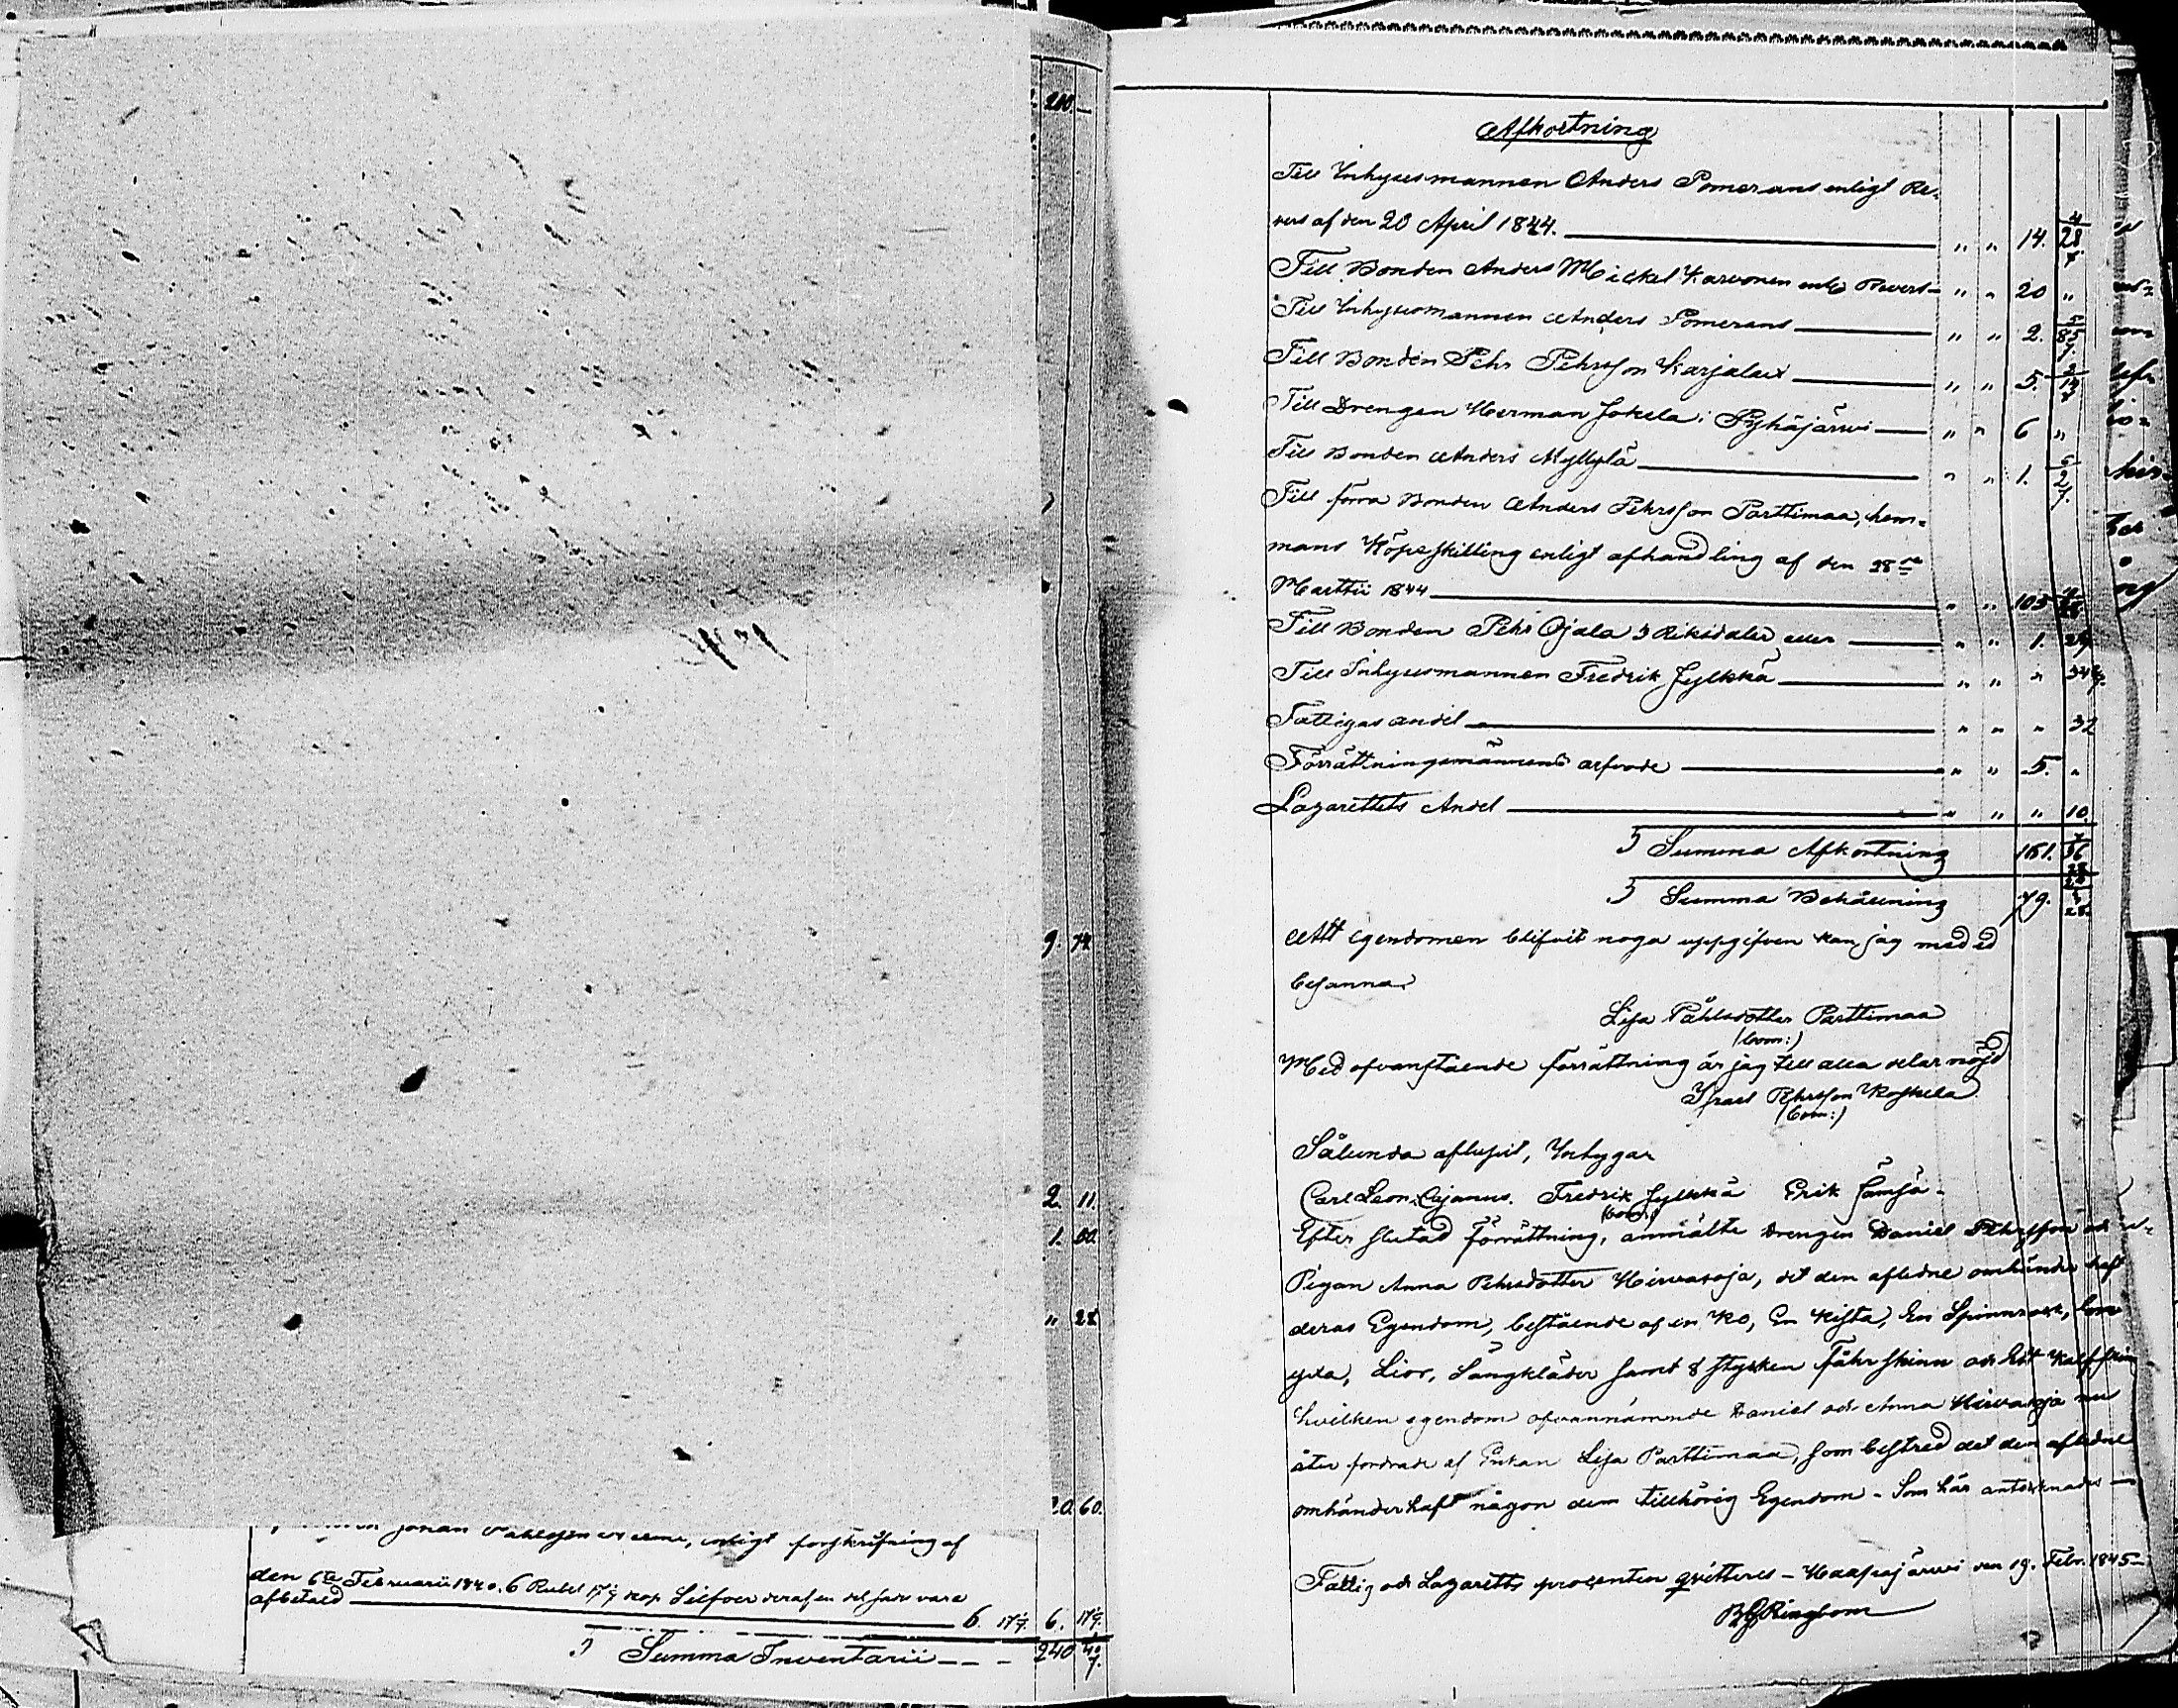 200. —
9. 74
2. 11.
1. 60.
" 28
20. 60.
Johan enligt förskrifning af
den 6te Februarii 1840. 6 Rubel 17 1/7 kop. Silfver deraf en del vara
afbetald 6. 17 1/7. 6. 17 1/7.
Summa Inventarii — — — 240
Afkortning
Till Inhysesmannen Anders Pomerans enligt Re-
vers af den 20 April 1844. " " 14. 28 4/7
Till Bonden Anders Mickel Karvonen enl. Revers " " 20 "
Till Inhysesmannen Anders Pomerans " " 2. 85 5/7.
Till Bonden Pehr Pehrsson Karjalax " " 5. 14 2/7
Till Drengen Herman Jokela i Pyhäjärwi " " 6 "
Till Bonden Anders Myllylä " " 1. 2 6/7.
Till förra Bonden Anders Pehrsson Parttimaa, hem-
mans Köpeskilling enligt afhandling af den 28de
Marttii 1844 " " 103
Till Bonden Pehr Ojala 3 Riksdaler eller " " 1.
Till Inhysesmannen Fredrik Jylkkä " " " 34 2/7.
Fattigas andel " " " 32
Förrättningsmännens arfvode " " 5. "
Lazarettets Andel " " " 10.
Summa Afkortning 161.
Summa Behållning 79.
Att egendomen blifvit noga uppgifven kan jag med ed
besanna
Lisa Påhlsdotter Parttimaa
(bom:)
Med ofvanstående förrättning är jag till alla delar nöjd
Israel Pehrsson Koskela
(bom:)
Sålunda aflupit, Intygar
Carl Leon. Cajanus. Fredrik Jylkkä Erik Jämsä.
(bom:)
Efter slutad förrättning, anmälte Drengen Daniel Pehrsson och
Pigan Anna Pehrsdotter Hirvasoja, det den aflidne omhänder haft
deras Egendom, bestående af en Ko, En Kista, En Spinnrock, En
yxa, Lior, Sängkläder samt 8 stycken Fåhr skinn och Ett Kalfskin
hvilken egendom ofvannämnde Daniel och Anna Hirvasoja nu
åter fordrade af Enkan Lisa Parttimaa, som bestred det den aflidne
omhänderhaft någon dem tillhörig Egendom. Som här antecknades —
Fattig och Lazaretts procenten qvitteras — Haapajärwi den 19. Febr. 1845 —
Ringbom